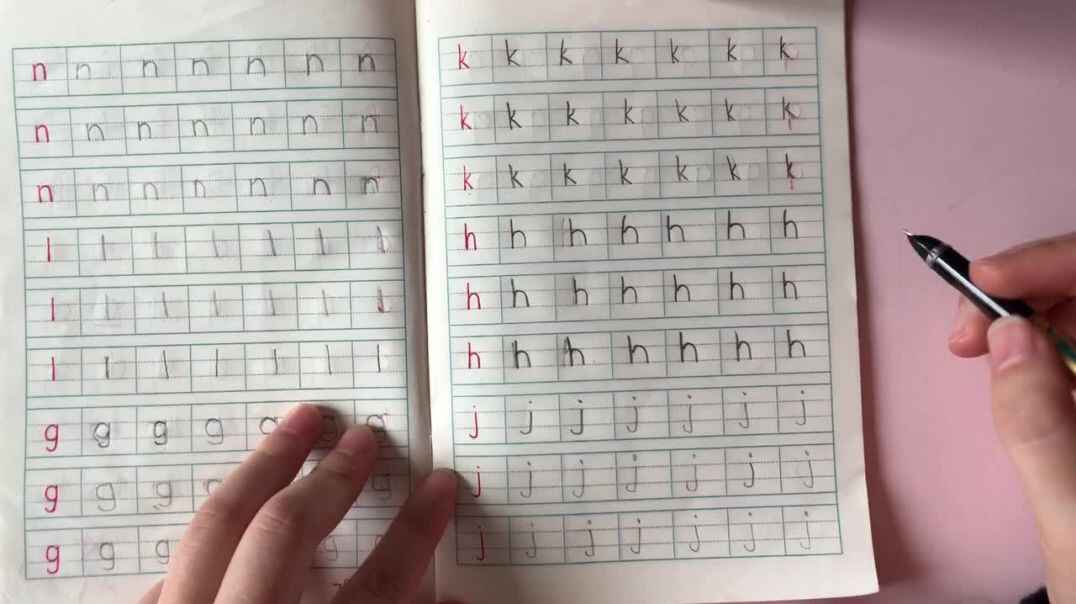 n n n n n n n
n n n n n n n
n n n n n n n
l l l l l l l
l l l l l l l
l l l l l l l
g g g g g g g
g g g g g
g g g g
k k k k k k k
k k k k k k k
k k k k k k k
h h h h h h h
h h h h h h h
h h h h h h h
j j j j j j j
j j j j j j j
j j j j j j j